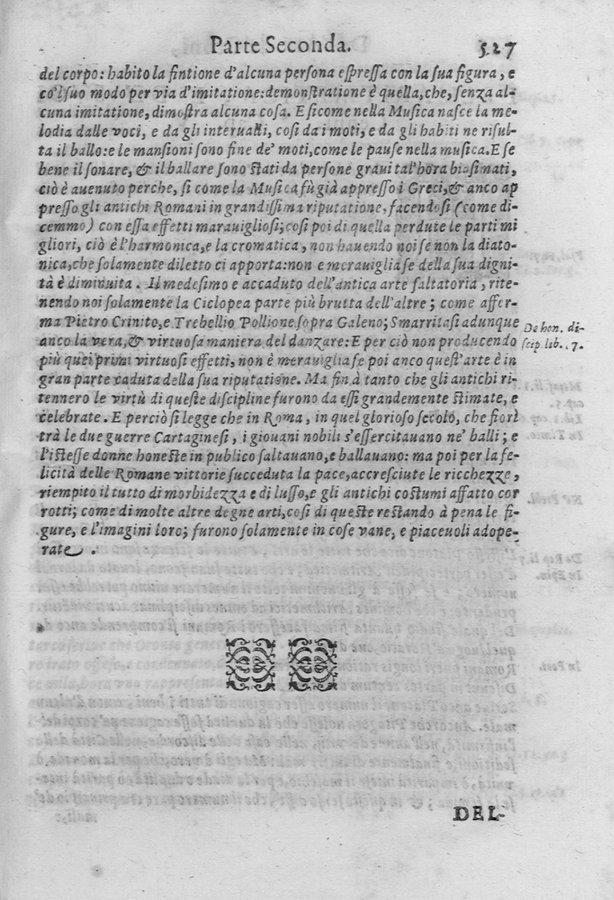 Parte Seconda. 527
del corpo: habito la fintione d'alcuna persona espressa con la sua figura, e
co'l suo modo per via d'imitatione: demonstratione è quella, che, senza al-
cuna imitatione, dimostra alcuna cosa. E sicome nella Musica nasce la me-
lodia dalle voci, e da gli interualli, cosi da i moti, e da gli habiti ne risul-
ta il ballo: e le mansioni sono fine de' moti, come le pause nella musica. E se
bene il sonare, & il ballare sono stati da persone graui tal'hora biasimati,
ciò è auenuto perche, si come la Musica fù già appresso i Greci, & anco ap
presso gli antichi Romani in grandissima riputatione, facendosi (come di-
cemmo) con essa effetti marauigliosi; cosi poi di quella perduie le parti mi
gliori, ciò è l'harmonica, e la cromatica, non hauendo noi se non la diato-
nica, che solamente diletto ci apporta: non e merauiglia se della sua digni-
tà è diminuita. Il medesimo e accaduto dell'antica arte saltatoria, rite-
nendo noi solamente la Ciclopea parte più brutta dell'altre; come affer-
ma Pietro Crinito, e Trebellio Pollione sopra Galeno; Smarritasi adunque
anco la vera, & virtuosa maniera del danzare: E per ciò non producendo
più quei primi virtuosi effetti, non è merauiglia se poi anco quest'arte è in
gran parte caduta della sua riputatione. Ma fin à tanto che gli antichi ri-
tennero le virtù di queste discipline furono da essi grandemente stimate, e
celebrate. E perciò si legge che in Roma, in quel glorioso secolo, che fiorì
trà le due guerre Cartaginesi, i giouani nobili s'essercitauano ne' balli; e
l'istesse donne honeste in publico saltauano, e ballauano: ma poi per la fe-
licità delle Romane vittorie succeduta la pace, accresciute le ricchezze,
riempito il tutto di morbidezza e di lusso, e gli antichi costumi affatto cor
rotti; come di molte altre degne arti, cosi di queste restando à pena le fi-
gure, e l'imagini loro; furono solamente in cose vane, e piaceuoli adope-
rate.
De hon. di-
scip. lib. 7.
DEL-